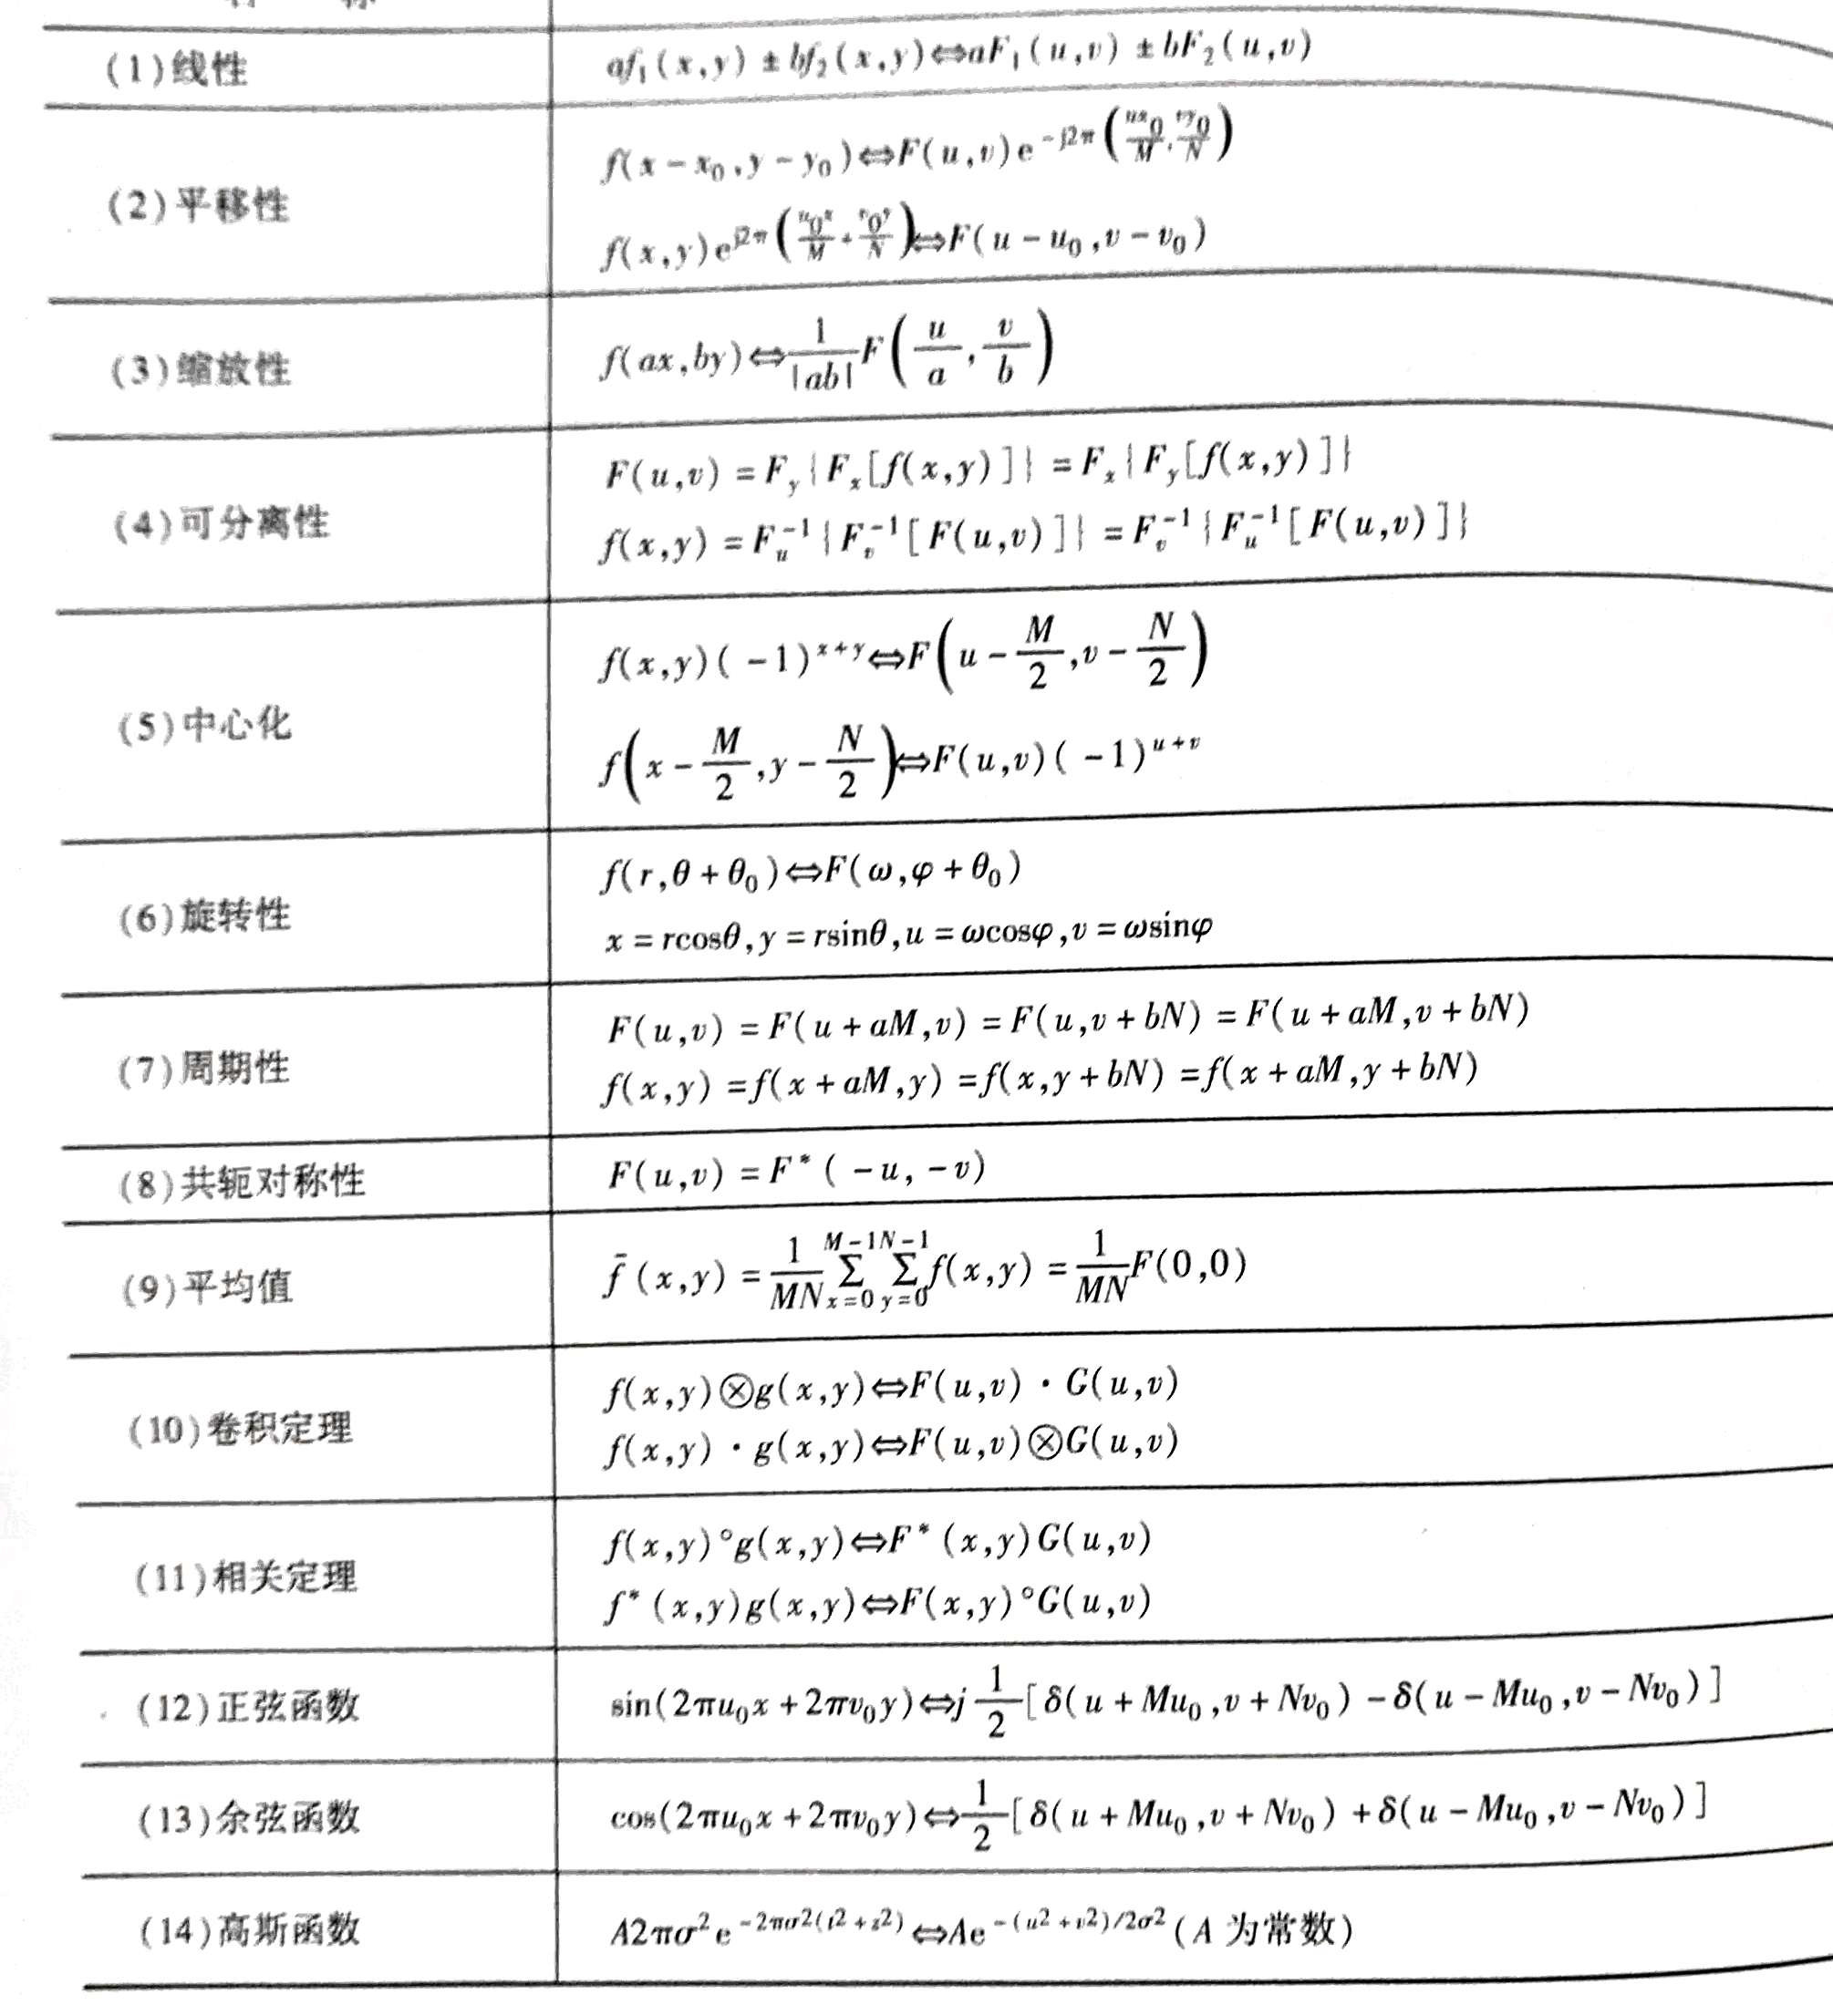 (1)线性
af₁(x,y) ± bf₂(x,y)⇔aF₁(u,v) ± bF₂(u,v)
(2)平移性
f(x－x₀,y－y₀)⇔F(u,v)e^{－j2π(ux₀/M,vy₀/N)}
f(x,y)e^{j2π(u₀x/M+v₀y/N)}⇔F(u－u₀,v－v₀)
(3)缩放性
f(ax,by)⇔1/|ab| F(u/a,v/b)
(4)可分离性
F(u,v) = F_y{F_x[f(x,y)]} = F_x{F_y[f(x,y)]}
f(x,y) = F_u^{-1}{F_v^{-1}[F(u,v)]} = F_v^{-1}{F_u^{-1}[F(u,v)]}
(5)中心化
f(x,y)(－1)^{x+y}⇔F(u－M/2,v－N/2)
f(x－M/2,y－N/2)⇔F(u,v)(－1)^{u+v}
(6)旋转性
f(r,θ+θ₀)⇔F(ω,φ+θ₀)
x = rcosθ,y = rsinθ,u = ωcosφ,v = ωsinφ
(7)周期性
F(u,v) = F(u+aM,v) = F(u,v+bN) = F(u+aM,v+bN)
f(x,y) = f(x+aM,y) = f(x,y+bN) = f(x+aM,y+bN)
(8)共轭对称性
F(u,v) = F*(－u,－v)
(9)平均值
f̄(x,y) = 1/MN ∑_{x=0}^{M－1} ∑_{y=0}^{N－1} f(x,y) = 1/MN F(0,0)
(10)卷积定理
f(x,y)⊗g(x,y)⇔F(u,v)·G(u,v)
f(x,y)·g(x,y)⇔F(u,v)⊗G(u,v)
(11)相关定理
f(x,y)°g(x,y)⇔F*(x,y)G(u,v)
f*(x,y)g(x,y)⇔F(x,y)°G(u,v)
(12)正弦函数
sin(2πu₀x+2πv₀y)⇔j 1/2 [δ(u+Mu₀,v+Nv₀)－δ(u－Mu₀,v－Nv₀)]
(13)余弦函数
cos(2πu₀x+2πv₀y)⇔1/2 [δ(u+Mu₀,v+Nv₀)+δ(u－Mu₀,v－Nv₀)]
(14)高斯函数
A2πσ²e^{－2πσ2(t2+z2)}⇔Ae^{－(u2+v2)/2σ2}(A 为常数)